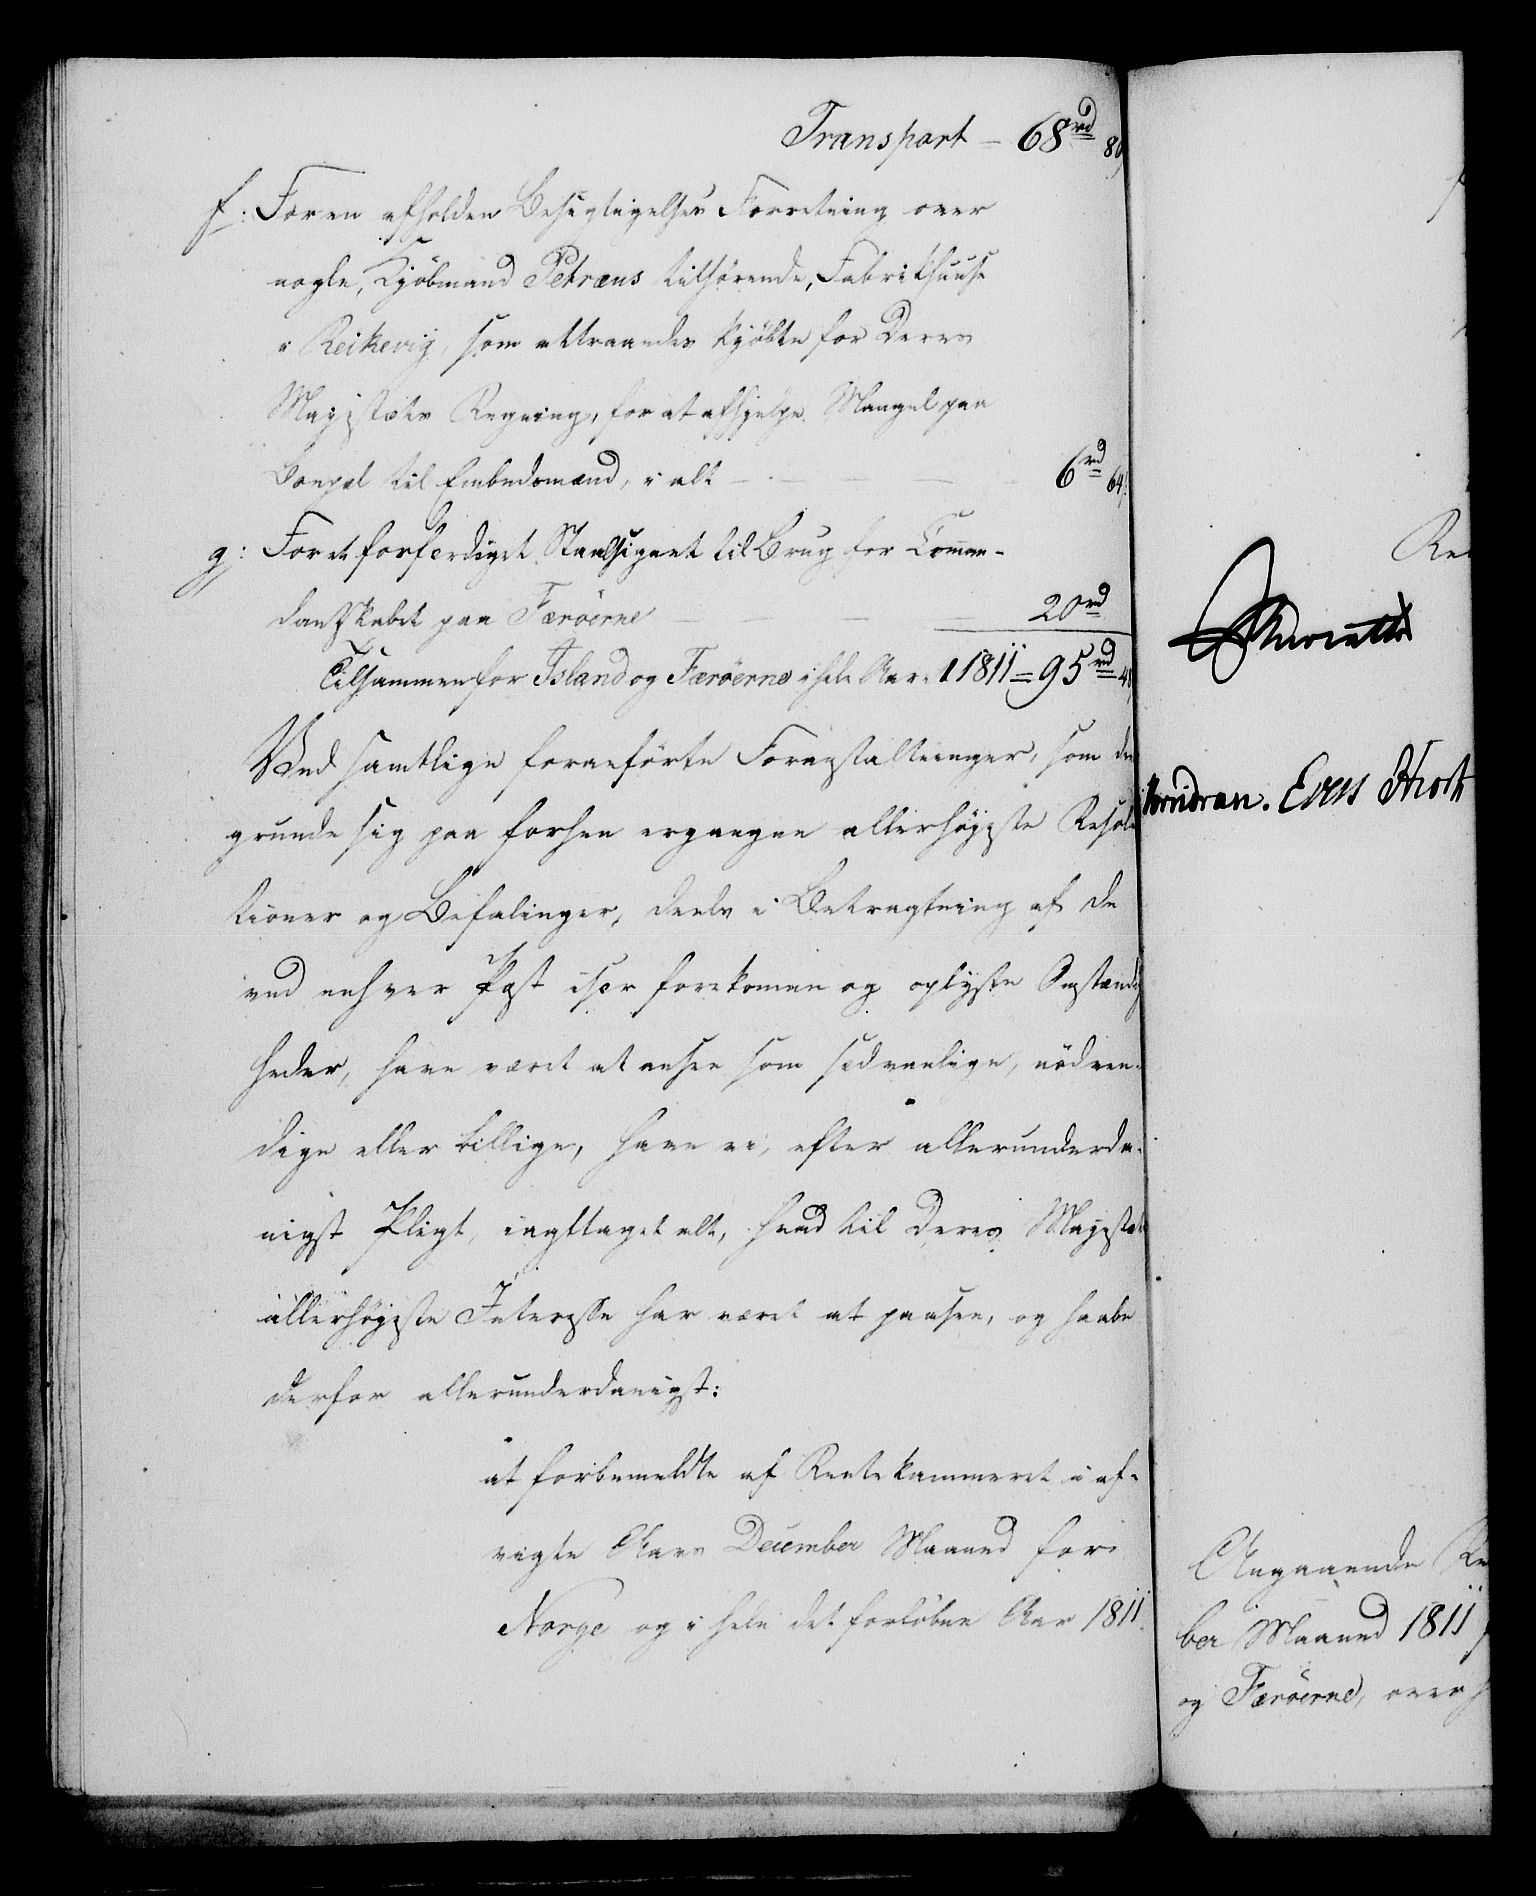 Transport — 68rd 80
f: For en afholden Besigtigelses Forretning over
nogle, Kjöbmand Petræus tilhörende, Fabrikhuuse
i Reikevig, som attraaedes kjöbte for Deres
Majestæts Regning, for at afhjelpe Mangel paa
Bopæl til Embedsmænd, i alt — — — 6rd 64
g: For et forferdiget Staalsignet til Brug for Comman-
dantskabet paa Færöerne — — — 20rd
Tilsammen for Island og Færöerne i hele Aaret 1811 = 95rd 48
Ved samtlige foranförte Foranstaltninger, som de
grunde sig paa forhen ergangne allerhöjeste Resolu
tioner og Befalinger, deels i Betragtning af de
ved enhver Post især forekomne og oplyste Omstændig
heder, have været at ansee som sædvanlige, nödven-
dige eller billige, have vi, efter allerunderda-
nigst Pligt, iagttaget alt, hvad til Deres Majestæts
allerhöjeste Interesse har været at paasee, og haabe
derfor allerunderdanigst:
at forbemeldte af Rentekammeret i af-
vigte Aars December Maaned for
Norge og i hele det forlöbne Aar 1811
Angaaende Re
ber Maaned 1811
og Færöerne, over